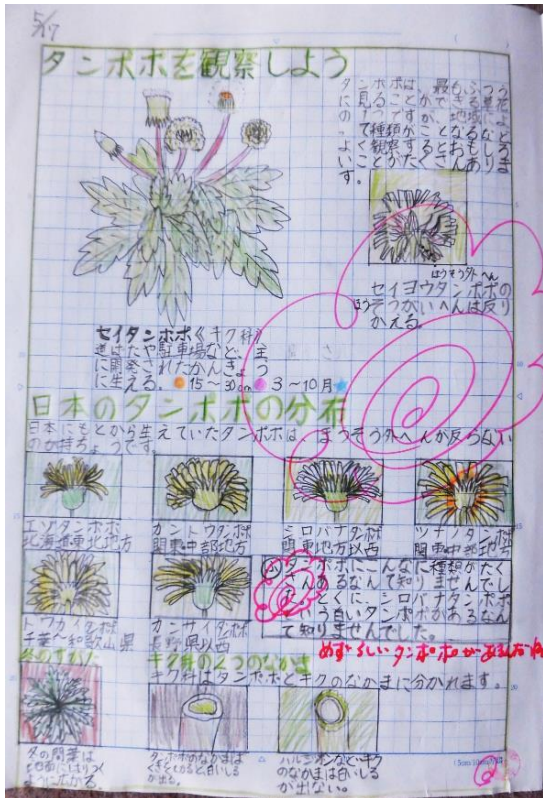 5/17
タンポポを観察しよう
タンポポは、最もふつう
に見ることができる草花
の1つですが、地域によ
って種類がことなるなど
よく観察するとおもしろ
いことがたくさんありま
す。
ほうそう外へん
セイヨウタンポポの
ほうそうがいへんは反り
かえる。
セイタンポポ《キク科》
道ばたや駐車場など、主
に開発されたかんきょう
に生える。 15〜30cm 3〜10月
日本のタンポポの分布
日本にもとから生えていたタンポポは、ほうそう外へんが反らない
のが特ちょうです。
エゾタンポポ
北海道東北地方
カントウタンポポ
関東中部地方
シロバナタンポポ
関東地方以西
関東中部地方
トウカイタンポポ
千葉〜和歌山県
カンサイタンポポ
長野県以西
タンポポにこんなに種類がたく
さんあるなんて知りませんでし
た。とくに、シロバナタンポポ
という白いタンポポがあるなん
て知りませんでした。
めずらしいタンポポがあるんだね
冬のすがた
キク科の2つのなかま
キク科はタンポポとキクのなかまに分かれます。
冬の間葉は
地面にはりつく
ように広がる。
タンポポのなかまは
くきを切ると白いしる
が出る。
ハルジオンなどキク
のなかまは白いしる
が出ない。